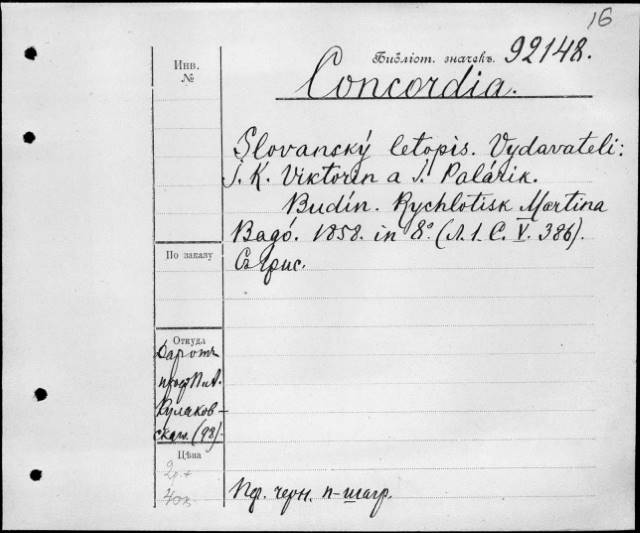 16
Инв. №
Библіот. значекъ. 92148.
Concordia.
Slovanský letopis. Vydavateli:
J. K. Viktorin a J. Palárik.
Budín. Rychlotisk Martina
Bagó. 1858. in 8° (Л. 1. C. V. 386).
Съ 1 рис.
По заказу
Откуда
Даръ отъ
проф. Пл. А.
Кулаков-
скаго. (98).
Цѣна
2 р.
40 к
Пф. черн. п-шагр.